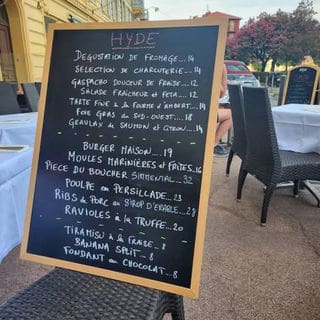 HYDE
DEGUSTATION DE FROMAGE...14
SELECTION DE CHARCUTERIE...14
GASPACHO DOUCEUR DE FRAISE...12
SALADE FRAÎCHEUR et FETA...12
TARTE FINE à la FOURME d'AMBERT...14
FOIE GRAS du SUD-OUEST...18
GRAVLAX de SAUMON et CITRON...14
BURGER MAISON...19
MOULES MARINIÈRES et FRITES...16
PIECE DU BOUCHER SIMMENTAL...32
POULPE en PERSILLADE...23
RIBS de PORC au SIROP D'ERABLE...28
RAVIOLES à la TRUFFE...20
TIRAMISU à la FRAISE...8
BANANA SPLIT...8
FONDANT au CHOCOLAT...8